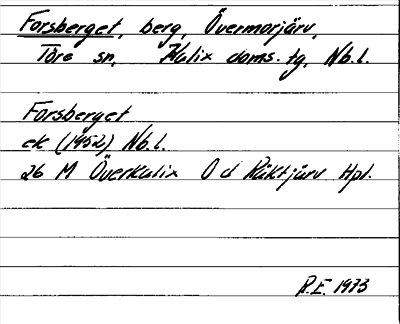 Forsberget, berg, Övermorjärv,
Töre sn, Kalix doms. tg, Nb.l.
Forsberget
ek (1952) Nb.l.
26 M Överkalix O d Räktjärv Hpl.
R.E. 1973